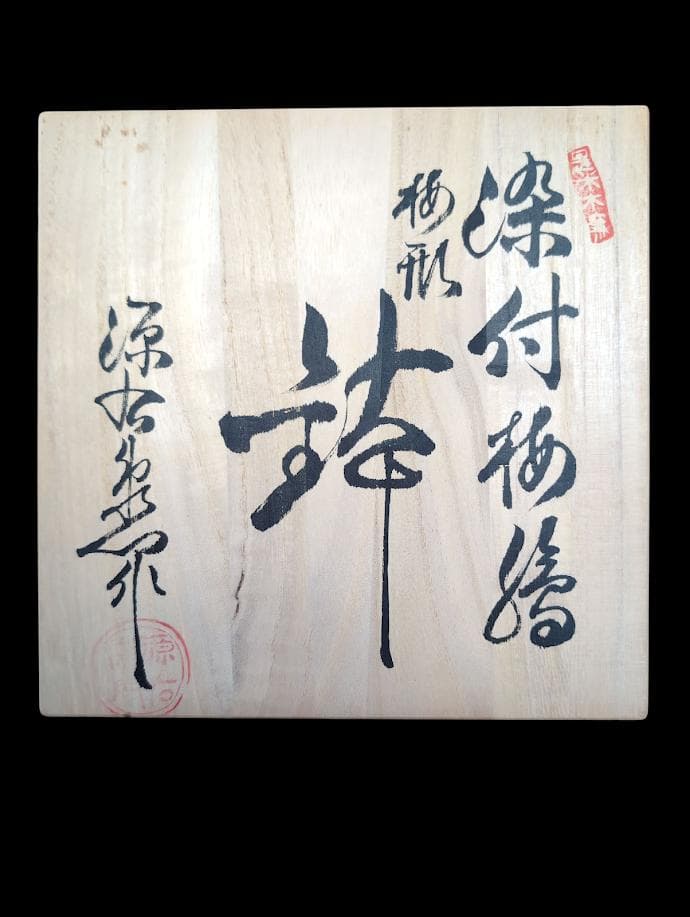 染付梅
梅形
鉢
源右衛門作